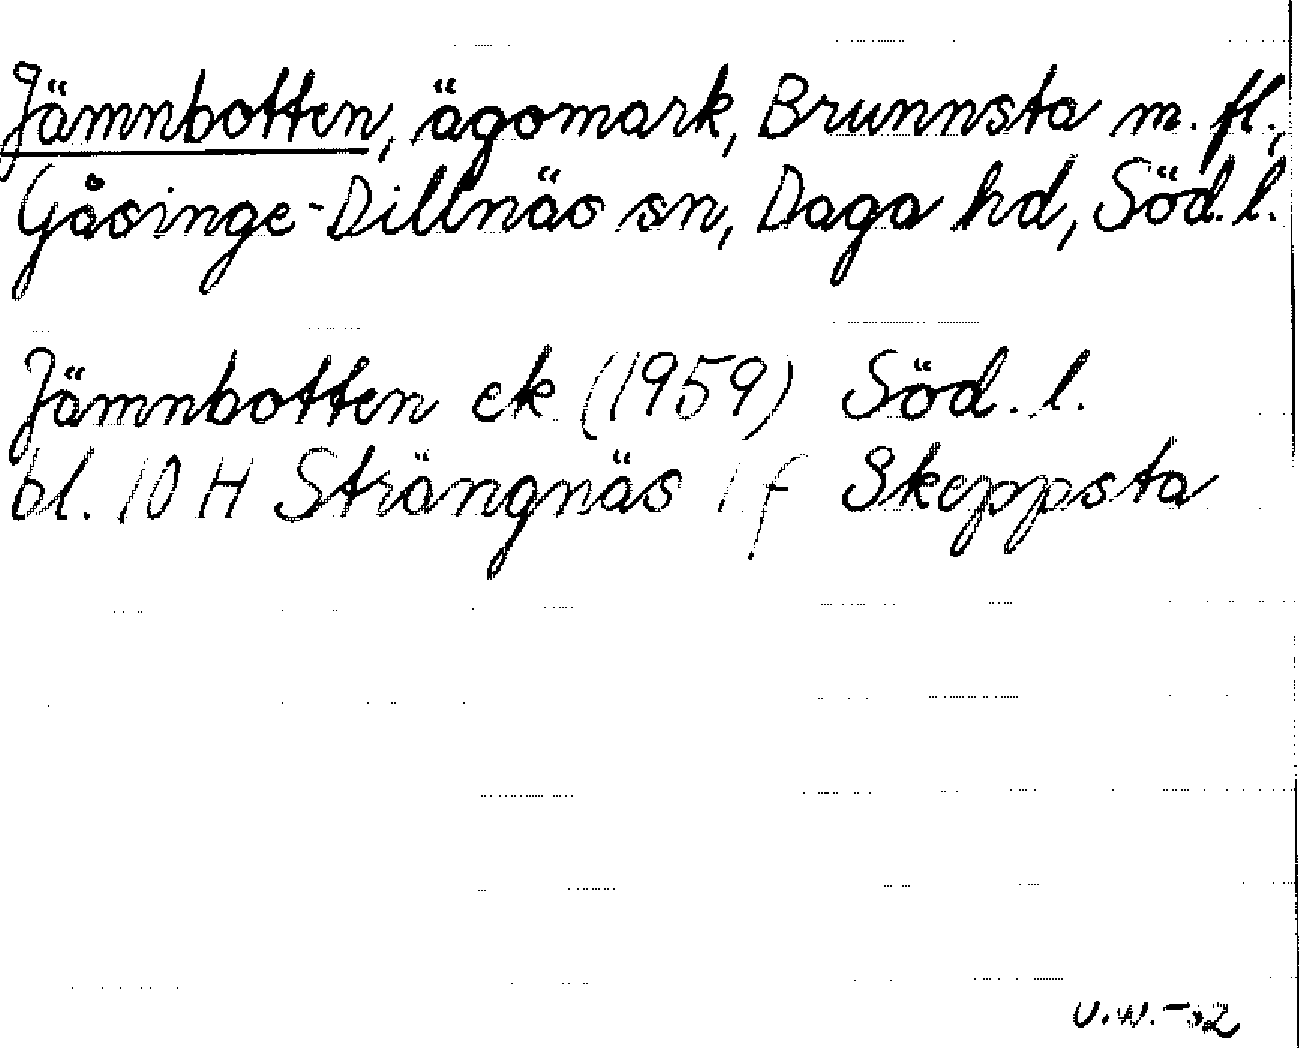 Jämnbotten, ägomark, Brunnsta m.fl.,
Gåsinge-Dillnäs sn, Daga hd, Söd.l.
Jämnbotten ek (1959) Söd.l.
bl. 10 H Strängnäs 1 f Skeppsta
U.W.-